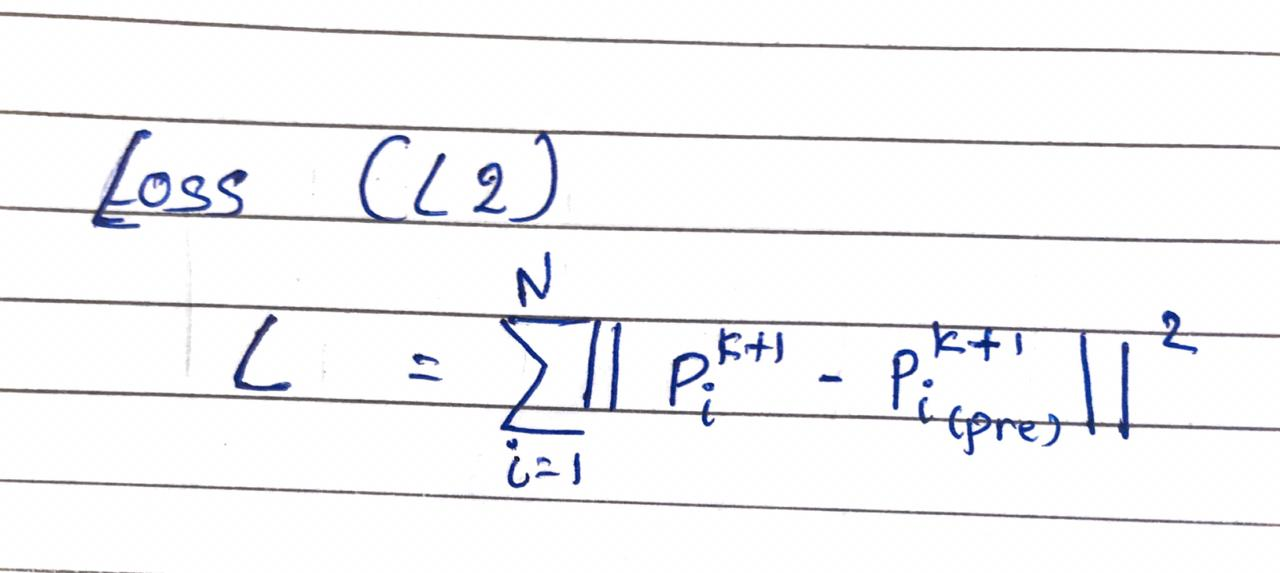 Loss (L2)
L = ∑_{i=1}^{N} || P_i^{k+1} - P_{i(pre)}^{k+1} ||^2